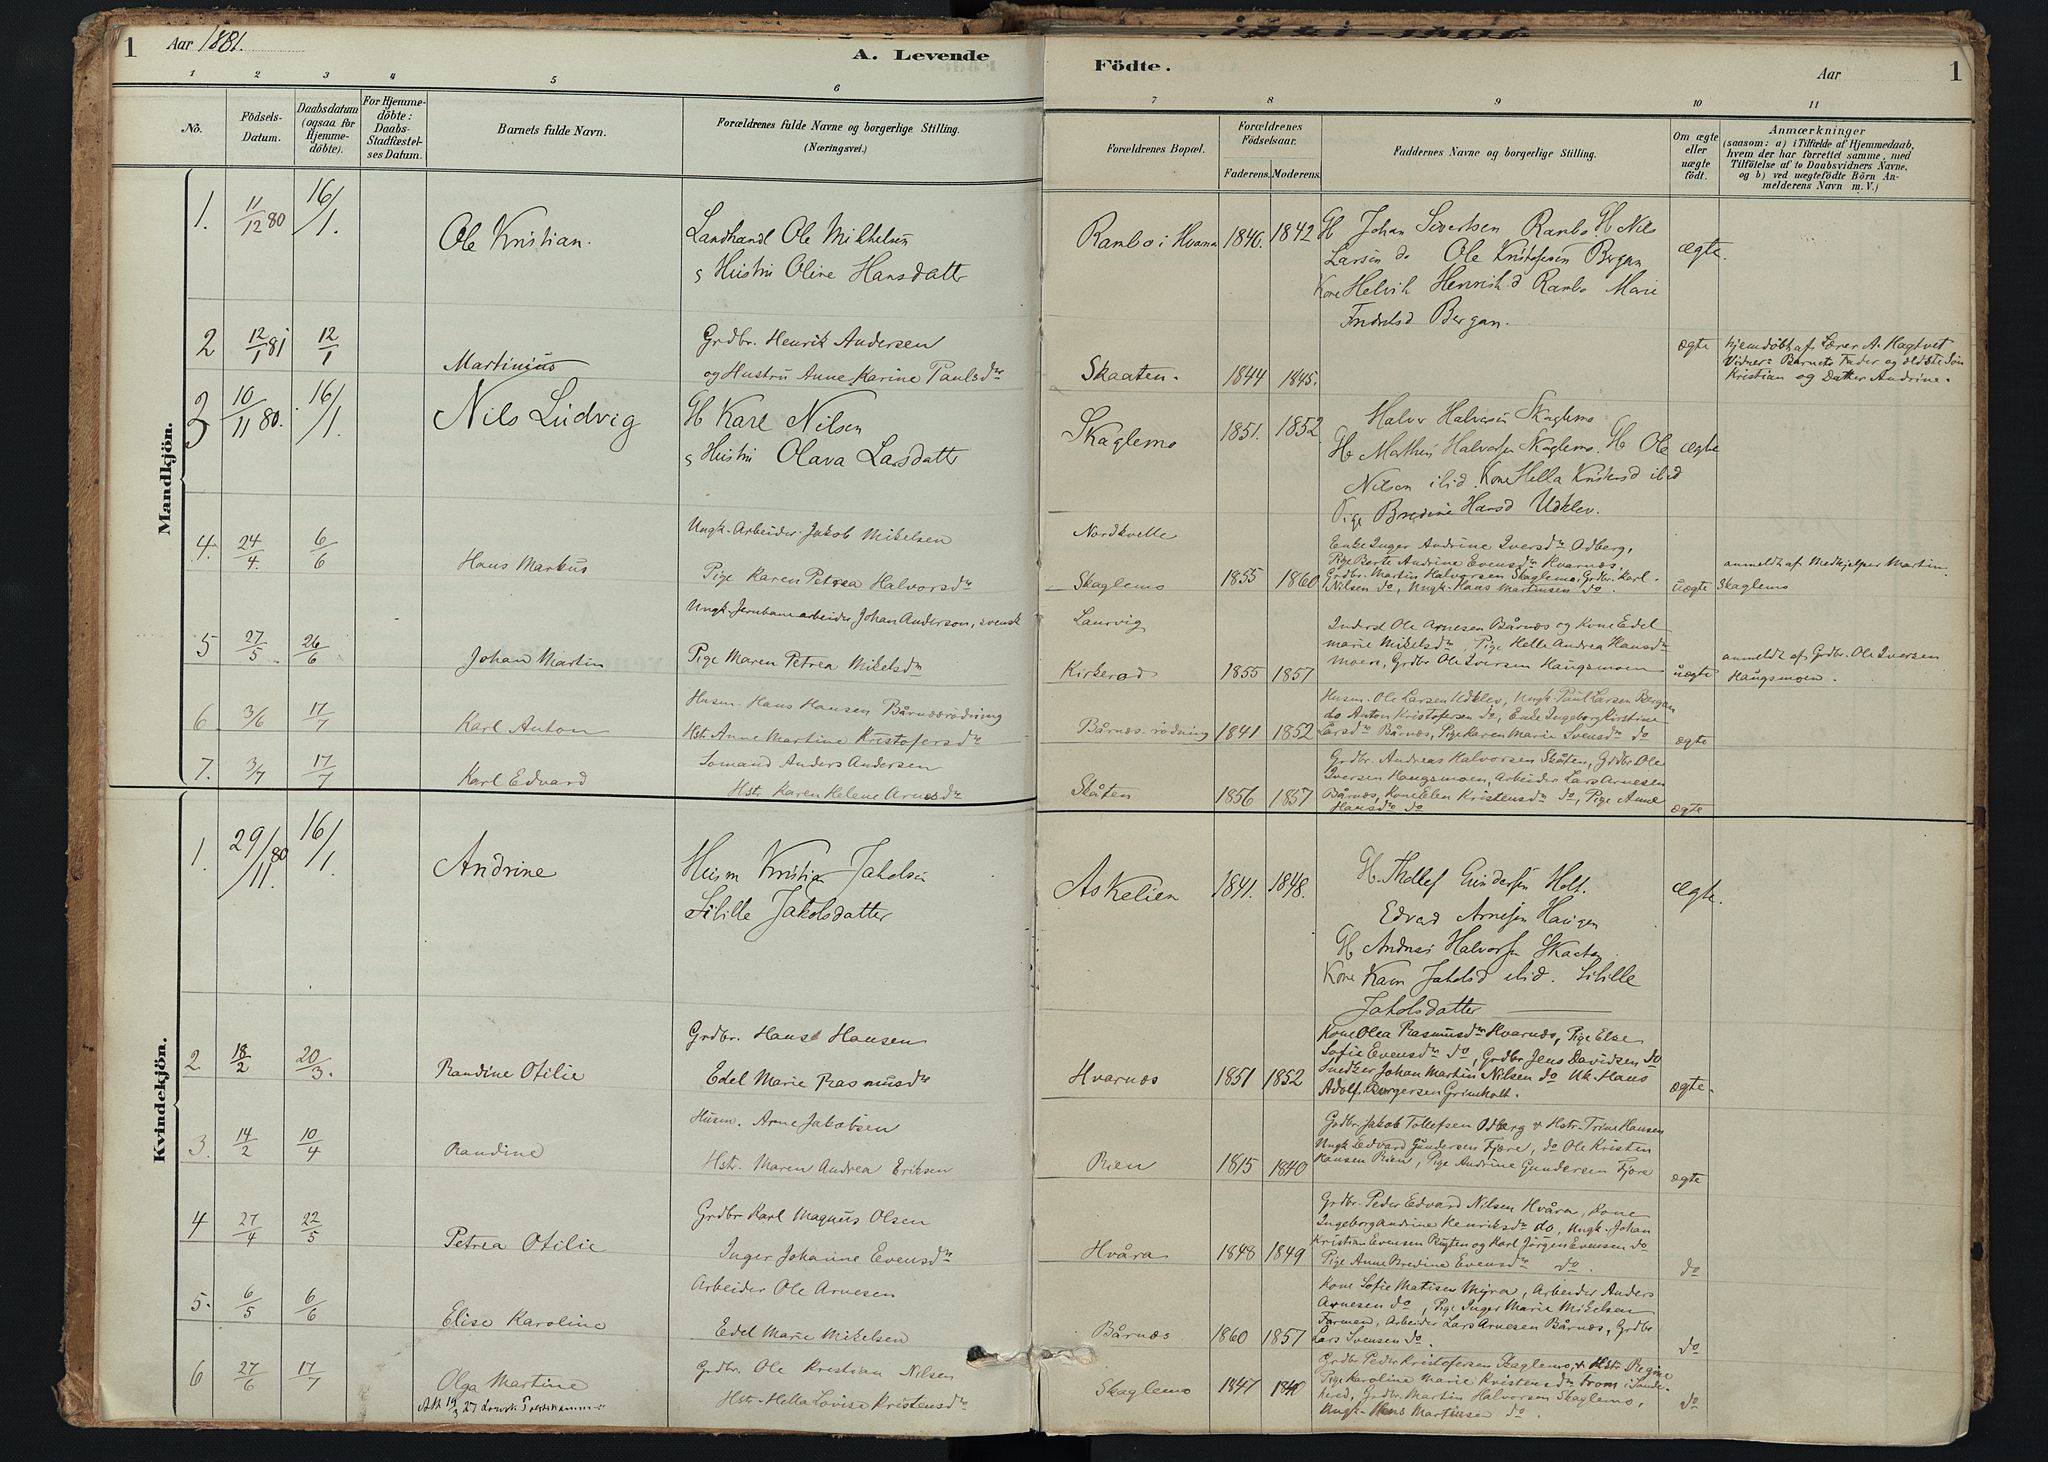 1 Aar 1881. A. Levende
1 2 3 4 5 6
No. Födsels-Datum. Daabsdatum (ogsaa for Hjemme-döbte). For Hjemme-döbte: Daabs-Stadfæstel-ses Datum. Barnets fulde Navn. Forældrenes fulde Navne og borgerlige Stilling. (Næringsvei.)
Mandkjön.
1. 11/12 80 16/1. Ole Kristian. Landhandl Ole Mikkelsen
s Hustru Oline Hansdatter
2 12/1 81 12/1 Martinius Grdbr. Henrik Andersen
og Hustru Anne Karine Paulsdr
3 10/11 80. 16/1. Nils Ludvig G Karl Nilsen
s Hustru Olava Larsdatter
4. 24/4. 6/6 Hans Markus Ungk. Arbeider Jakob Mikelsen
Pige Karen Petrea Halvorsdr
5 27/5 26/6 Johan Martin Ungk. Jernbanearbeider Johan Anderson, svensk
Pige Maren Petrea Mikelsdr
6 3/6 17/7 Karl Anton Husm. Hans Hansen Bårnæsrødning
Hstr Anne Martine Kristofersdr
7. 3/7 17/7 Karl Edvard Sømand Anders Andersen
Hstr Karen Helene Arnesdr
Kvindekjön.
1. 29/11. 80 16/1 Andrine Husm Kristian Jakobsen
Sibille Jakobsdatter
2 18/2 20/3. Randine Otilie Grdbr. Hans Hansen
Edel Marie Rasmusdr
3. 14/2 10/4 Randine Husm. Arne Jakobsen
Hstr. Maren Andrea Eriksen
4 27/4 22/5 Petrea Otilie Grdbr Karl Magnus Olsen
Inger Johanne Evensdr
5. 6/5 6/6 Elise Karoline Arbeider Ole Arnesen
Edel Marie Mikelsen
6 27/6 17/7 Olga Martine Grdbr. Ole Kristian Nilsen
Hstr. Hella Lovise Kristensdr
Födte. Aar 1
7 8 9 10 11
Forældrenes Bopæl. Forældrenes Födselsaar. Faderens. Moderens. Faddernes Navne og borgerlige Stilling. Om ægte eller uægte födt. Anmærkninger
(saasom: a) i Tilfælde af Hjemmedaab,
hvem der har forrettet samme, med
Tilföielse af to Daabsvidners Navne,
og b) ved uægtefödte Börn An-
melderens Navn m. V.)
Rambo i Hvarna 1846. 1842 G Johan Sivertsen Rambo. G Nils
Larsen do Ole Kristofersen Bergan
Kone Helvik Henriksd Rambo Marie
Bergan.
ægte.
Skaaten. 1844 1845. ægte hjemdøbt af Lærer A. Hagtvet
Vidner: Barnets Fader og ældste Søn
Kristian og Datter Andrine.
Skaglemo 1851. 1852. Halvor Halvorsen Skaglemo
G Mathis Halvorsen Skaglemo. G Ole
Nilsen ibid. Kone Hella Kristensd ibid
Pige Bredine Hansd Udklev.
ægte
Nordkvelle
Skaglemo 1855 1860 Enke Inger Andrine Iversdr Odberg,
Pige Berte Andrine Evensdr Hvarnæs,
Grdbr. Martin Halvorsen Skaglemo, Grdbr. Karl
Nilsen do, Ungk. Hans Martinsen do.
uægte anmeldt af Medhjelper Martin
Skaglemo
Laurvig
Kirkerød 1855 1857 Inderst Ole Arnesen Bårnæs og Kone Edel
marie Mikelsdr, Pige Helle Andrea Hansdr
moen, Grdbr Ole Iversen Haugsmoen
uægte anmeldt af Grdbr. Ole Iversen
Haugsmoen.
Bårnæs-rødning 1841 1852 Husm. Ole Larsen Udklev, Ungk. Paul Larsen Bergan
do Anton Kristofersen do, Enke Ingeborg Kirstine
Larsdr Bårnæs, Pige Karen Marie Svensdr do
ægte
Skåten 1856 1857 Grdbr. Andreas Halvorsen Skåten, Grdbr Ole
Iversen Haugsmoen, Arbeider Lars Arnesen
Bårnæs, Kone Elen Kristensdr do, Pige Anne
Hansdr do
ægte
Askelien 1841. 1848. G Thollef Gundersen Holt.
Edvad Arnesen Haugen
G Andreas Halvorsen Skaaten
Kone Karen Jakobsd ibid. Sibille
Jakobsdatter
ægte.
Hvarnæs 1851 1852 Kone Olea Rasmusdr Hvarnæs, Pige Else
Sofie Evensdr do, Grdbr Jens Davidsen do
Snedker Johan Martin Nilsen do Uk. Hans
Adolf Borgersen Grimholt.
ægte.
Rien 1815 1840 Grdbr. Jakob Tollefsen Odberg & Hstr. Trine Hansen
Ungk Edvard Gundersen Fjøre, do Ole Kristen
Hansen Rien, Pige Andrine Gundersen Fjøre
ægte
Hvåra 1848 1849 Grdbr. Peder Edvard Nilsen Hvåra, Kone
Ingeborg Andrine Henriksdr do, Ungk. Johan
Kristian Evensen og Karl Jørgen Evensen do
Pige Anne Bredine Evensdr do.
do
Bårnæs 1860 1857 Kone Sofie Matisen Myra, Arbeider Anders
Arnesen do, Pige Inger Marie Mikelsen
Farmen, Arbeider Lars Arnesen Bårnæs, Grdbr
Lars Svensen do
do
Skaglemo 1847 Grdbr Peder Kristofersen Skaglemo, & Hstr. Regine
Pige Karoline Marie Kristensdr from i Sande-
hered, Grdbr Martin Halvorsen Skaglemo,
Ungk. Hans Martinsen do.
do